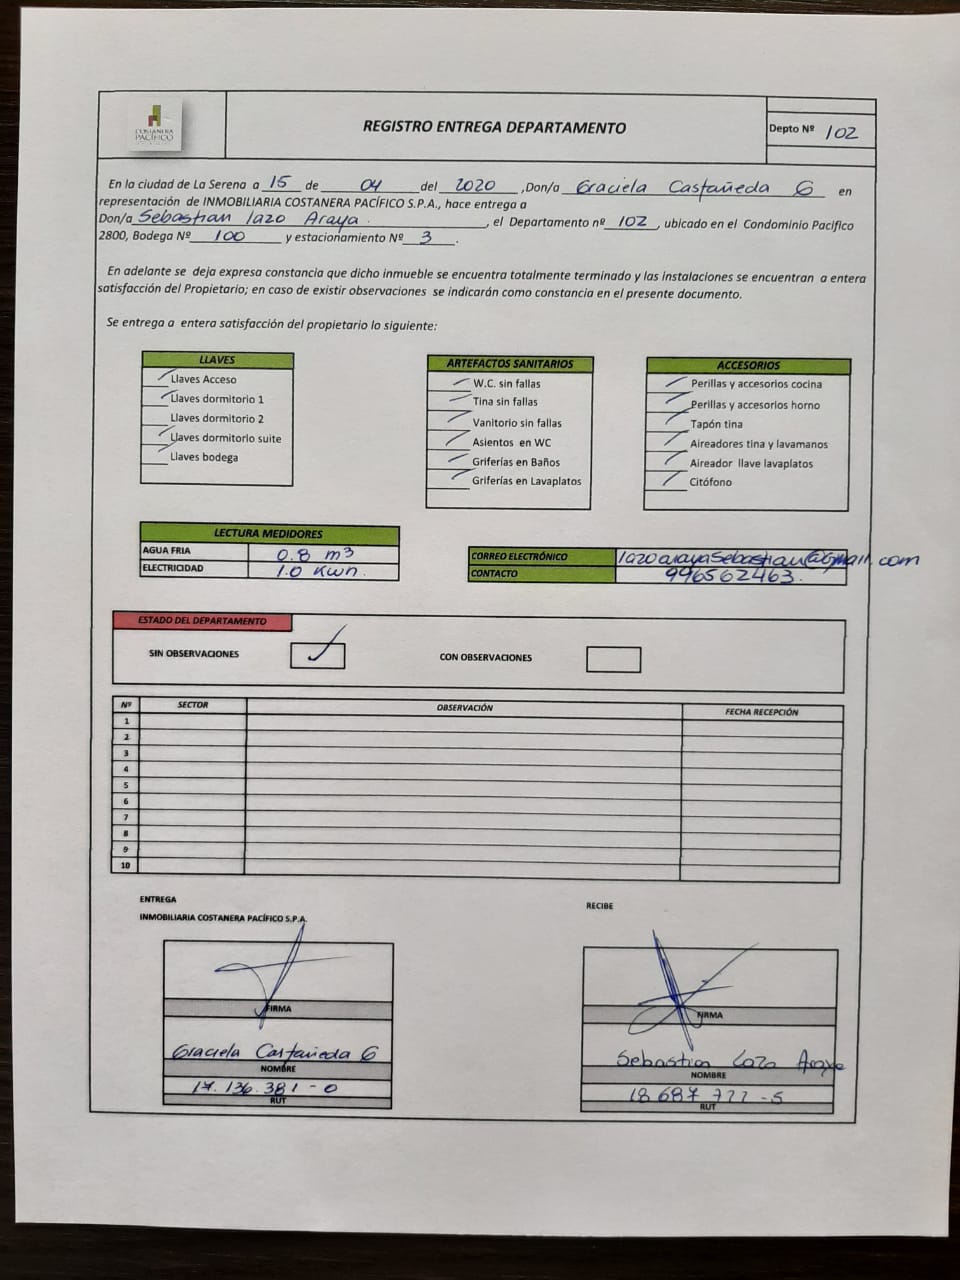 COSTANERA
PACÍFICO
REGISTRO ENTREGA DEPARTAMENTO
Depto Nº 102
En la ciudad de La Serena a 15 de 04 del 2020 ,Don/a Graciela Castañeda G en
representación de INMOBILIARIA COSTANERA PACÍFICO S.P.A., hace entrega a
Don/a Sebastian lazo Araya. , el Departamento nº 102 , ubicado en el Condominio Pacifico
2800, Bodega Nº 100 y estacionamiento Nº 3 .
En adelante se deja expresa constancia que dicho inmueble se encuentra totalmente terminado y las instalaciones se encuentran a entera
satisfacción del Propietario; en caso de existir observaciones se indicarán como constancia en el presente documento.
Se entrega a entera satisfacción del propietario lo siguiente:
LLAVES
Llaves Acceso
Llaves dormitorio 1
Llaves dormitorio 2
Llaves dormitorio suite
Llaves bodega
ARTEFACTOS SANITARIOS
W.C. sin fallas
Tina sin fallas
Vanitorio sin fallas
Asientos en WC
Griferías en Baños
Griferías en Lavaplatos
ACCESORIOS
Perillas y accesorios cocina
Perillas y accesorios horno
Tapón tina
Aireadores tina y lavamanos
Aireador llave lavaplatos
Citófono
LECTURA MEDIDORES
AGUA FRIA 0.8 m3
ELECTRICIDAD 1.0 Kwh.
CORREO ELECTRÓNICO lazoarayaSebastian@gmail.com
CONTACTO 996562463.
ESTADO DEL DEPARTAMENTO
SIN OBSERVACIONES
CON OBSERVACIONES
Nº SECTOR OBSERVACIÓN FECHA RECEPCIÓN
1
2
3
4
5
6
7
8
9
10
ENTREGA
INMOBILIARIA COSTANERA PACÍFICO S.P.A.
FIRMA
Graciela Castañeda G
NOMBRE
17.136.381-0
RUT
RECIBE
FIRMA
Sebastian Lazo Araya
NOMBRE
18 687 777 -5
RUT